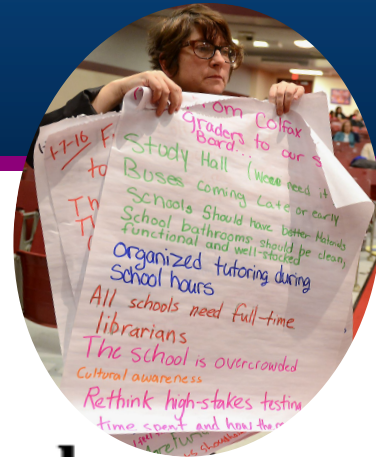 From Colfax
graders to our s
Board...
Study Hall (We need it
Buses coming Late or early
Schools Should have better Materials
School bathrooms should be clean,
functional and well-stocked
organized tutoring during
School hours
All schools need full-time
librarians
The school is overcrowded
Cultural awareness
Rethink high-stakes testing
time spent and how the
1-7-16 F
to
Th
Th